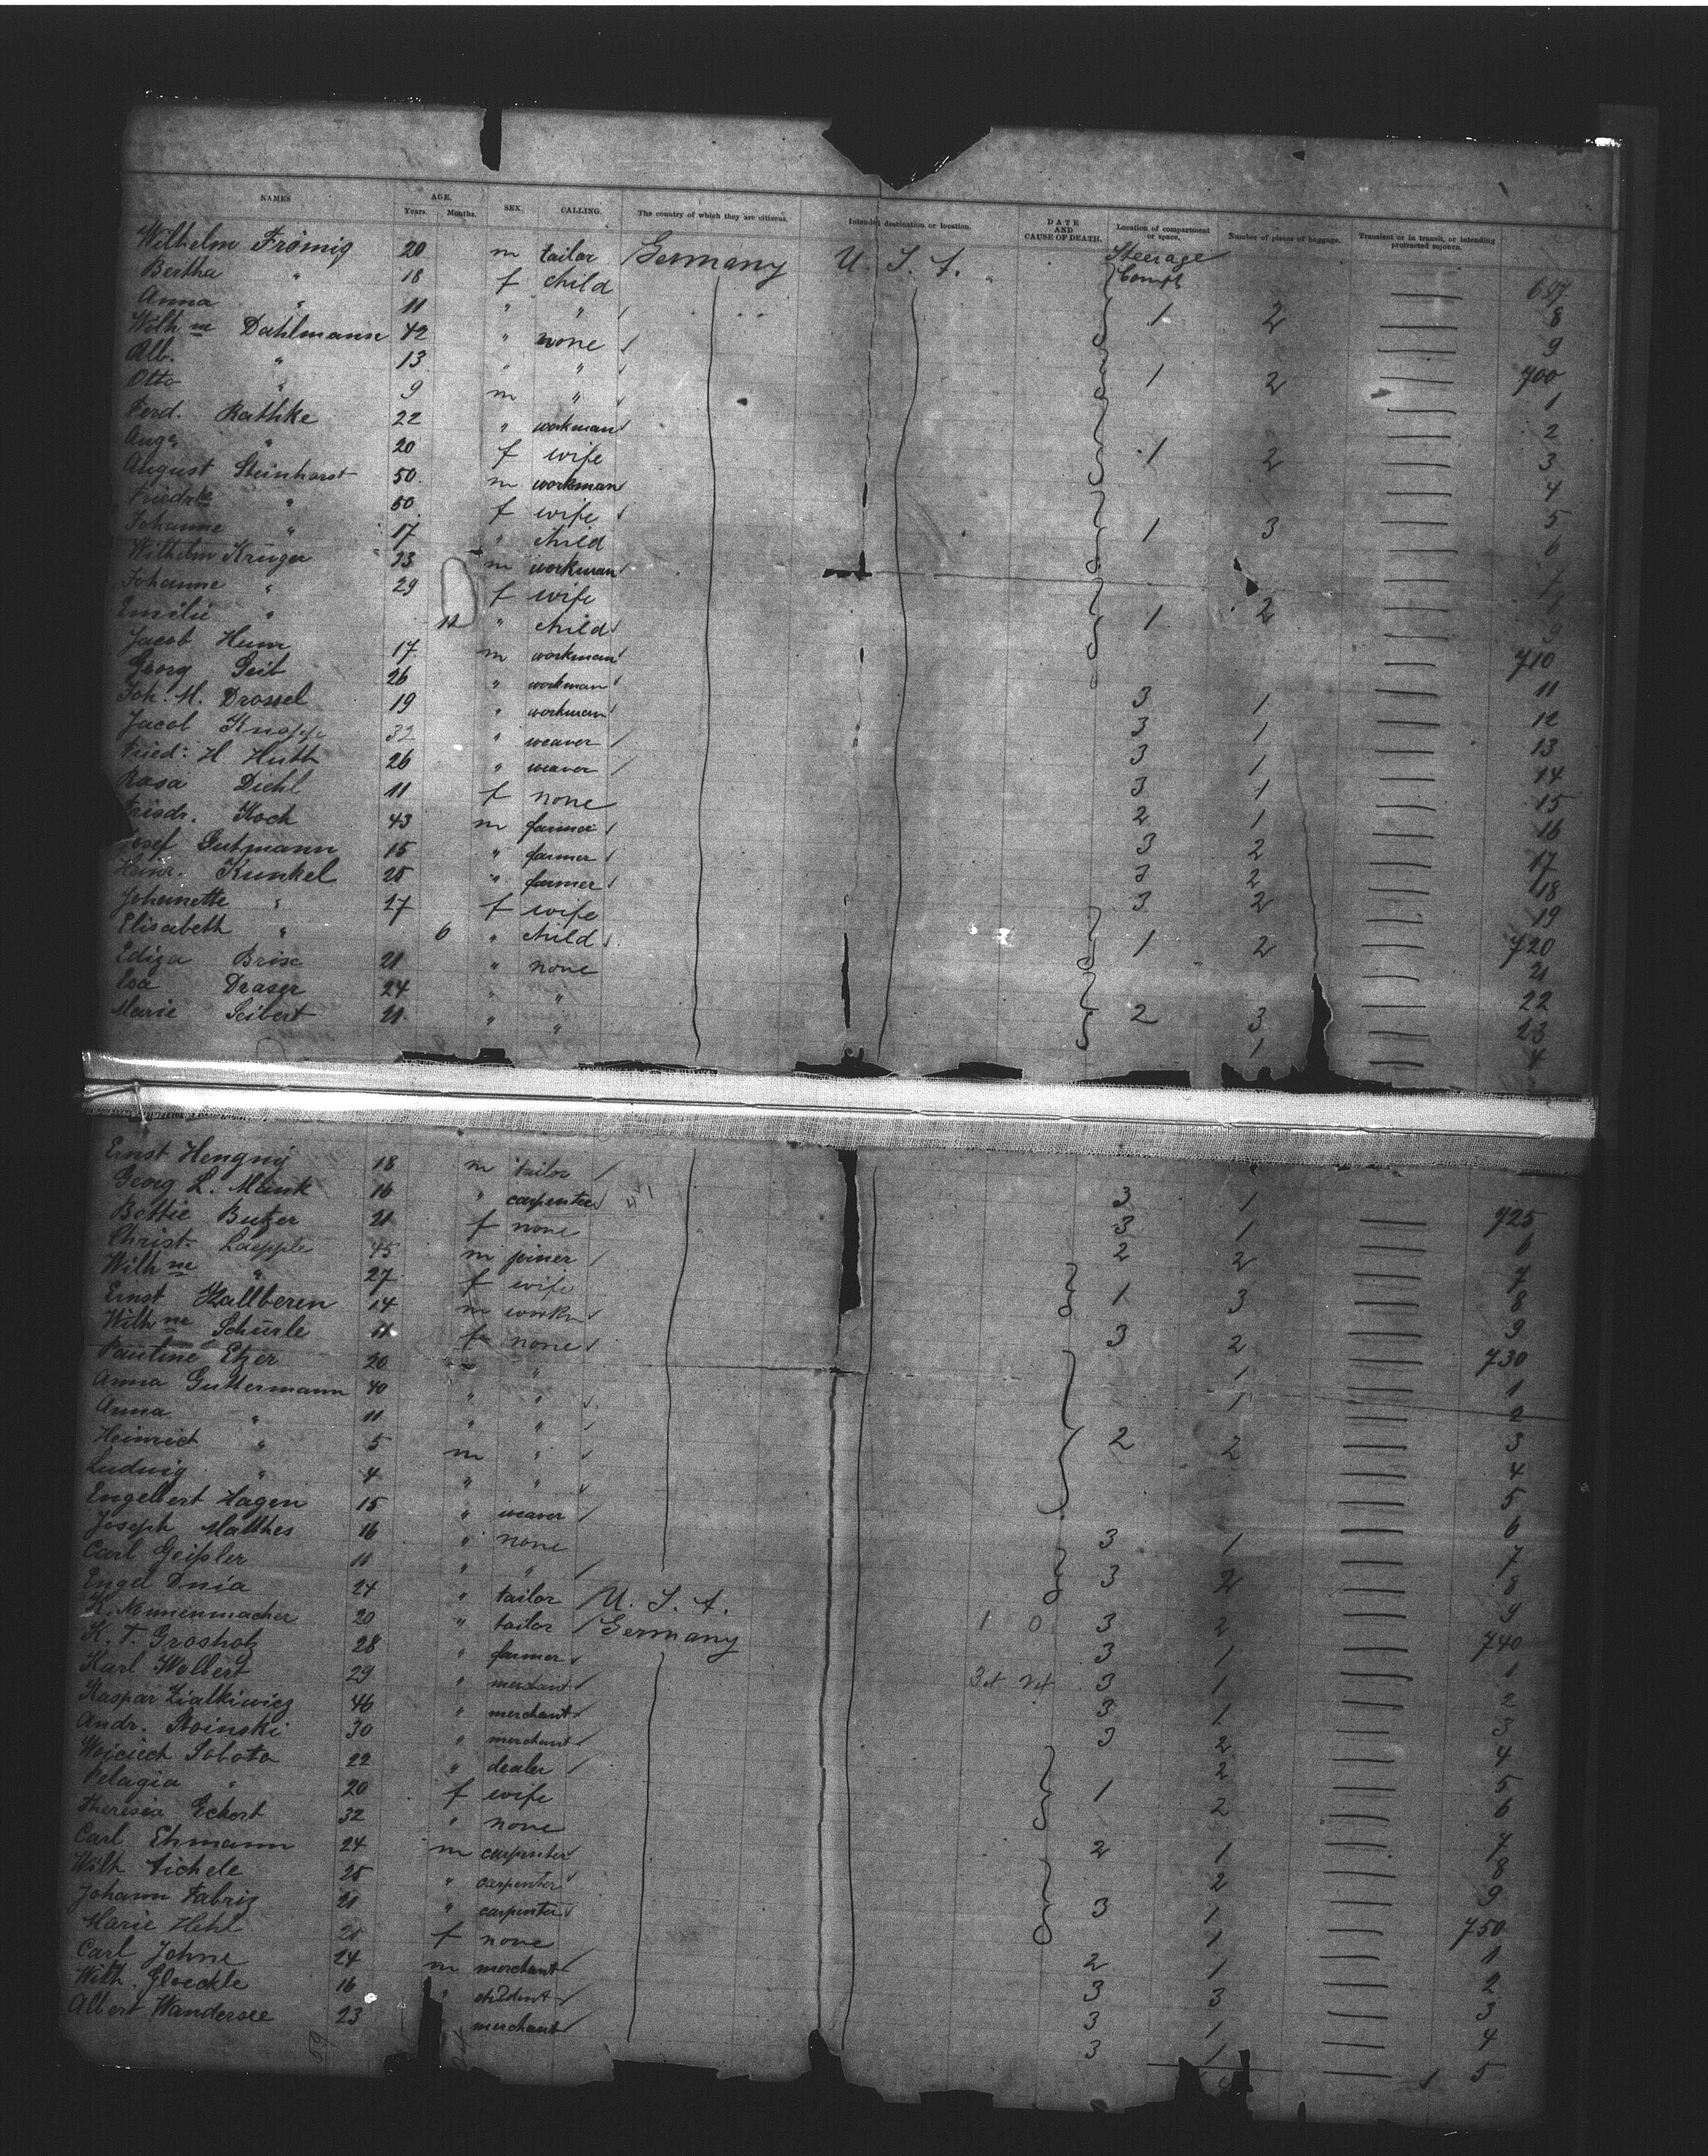 NAMES AGE. Years. Months. SEX. CALLING. The country of which they are citizens. Intended destination or location. DATE AND CAUSE OF DEATH. Location of compartment or space. Number of pieces of baggage. Transient or in transit, or intending protracted sojourn.
Wilhelm Frömig 20 m tailor Germany U. S. A. Steerage
Bertha " 18 f child Compt 697
Anna " 11 " " 1 2 8
Wilhme Dahlmann 42 " none 9
Alb. " 13 " " 1 2 700
Otto " 9 m " 1
Ferd. Rathke 22 " workman 2
Auge " 20 f wife 1 2 3
August Steinhorst 50 m workman 4
Friedrke " 50 f wife 5
Johanne " 17 " child 1 3 6
Wilhelm Krüger 33 m workman 7
Johanne " 29 f wife 8
Emilie " 11 " child 1 2 9
Jacob Hunr 17 m workman 710
Georg Geib 26 " workman 11
Joh. M. Drossel 19 " workman 3 1 12
Jacob Knopp 32 " weaver 3 1 13
Fried: H. Huth 26 " weaver 3 1 14
Rosa Diehl 11 f none 3 1 15
Friedr. Koch 43 m farmer 2 1 16
Josef Gutmann 15 " farmer 3 2 17
Heinr. Kunkel 25 " farmer 3 2 18
Johanette " 27 f wife 3 2 19
Elisabeth " 6 " child 1 2 720
Ediza Brisc 21 " none 21
Eva Draser 24 " " 22
Marie Seibert 21 " " 2 3 23
1 4
Ernst Hengny 18 m tailor
Georg L. Mank 16 " carpenter 3 1 725
Bettie Butzer 21 f none 3 1 6
Christ. Laepple 45 m joiner 2 2 7
Wilhme " 27 f wife 1 3 8
Ernst Hallberen 14 m workn 9
Wilhme Schürle 11 f none 3 2 730
Pauline Etzer 20 " " 1 1
Anna Guttermann 40 " " 1 2
Anna " 11 " " 3
Heinrich " 5 m " 2 2 4
Ludwig " 4 " " 5
Engelbert Hagen 15 " weaver 6
Joseph Matthes 16 " none 3 1 7
Carl Geißler 11 " " 3 2 8
Engel Dnia 24 " tailor U. S. A. 9
K. Nonnenmacher 20 " tailor Germany 1 0 3 2 740
K. T. Grosholz 28 " farmer 3 1 1
Karl Wolbert 29 " merchant 3 1 2
Kaspar Zialkiwicz 46 " merchant 3 1 3
Andr. Stoinski 30 " merchant 3 2 4
Wojciech Sobota 22 " dealer 2 5
Pelagia " 20 f wife 1 2 6
Theresia Eckert 32 " none
Carl Ehmann 24 m carpenter 2 1 7
Wilh Aichele 25 " carpenter 2 8
Johann Fabriz 21 " carpenter 3 1 9
Marie Hehl f none 1 750
Carl Johne 24 m merchant 2 1 1
Wilh. Gloeckle 16 " student 3 3 2
Albert Wandersee 23 merchant 3 1 3
3 1 4
1 5